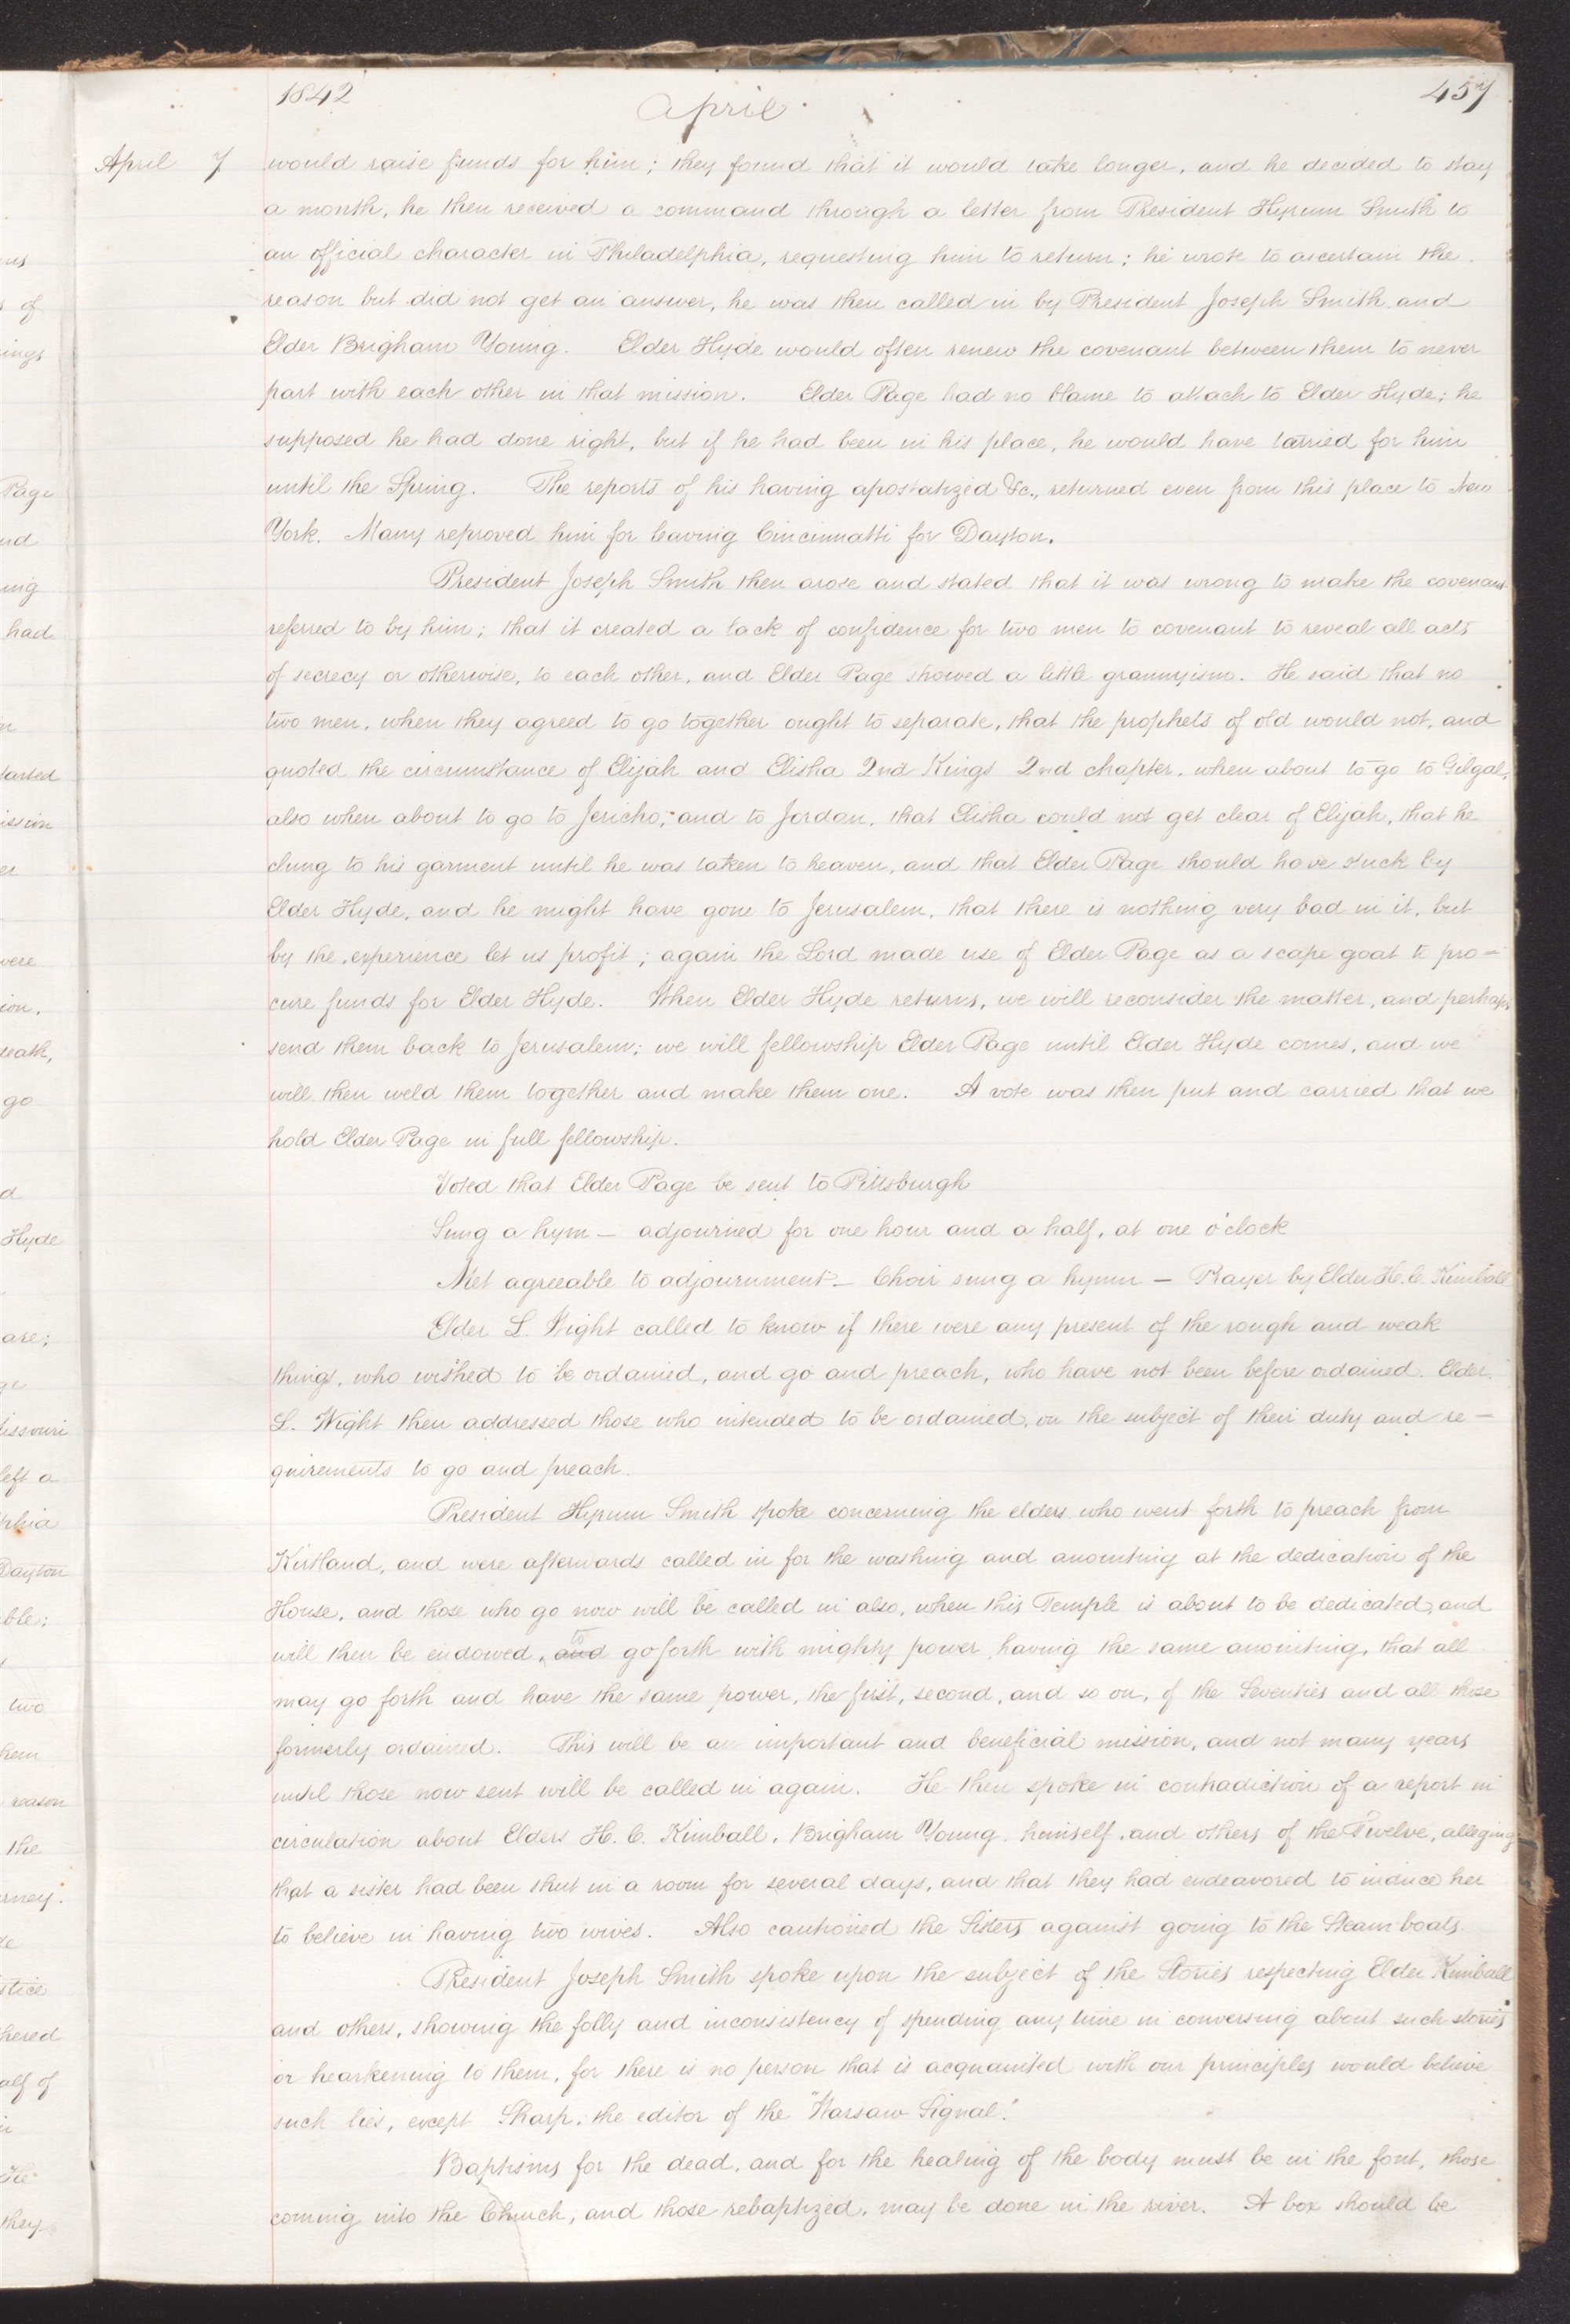 1842
April
457
April 7 would raise funds for him; they found that it would take longer, and he decided to stay
a month, he then received a command through a letter from President Hyrum Smith to
an official character in Philadelphia, requesting him to return; he wrote to ascertain the
reason but did not get an answer, he was then called in by President Joseph Smith and
Elder Brigham Young. Elder Hyde would often renew the covenant between them to never
part with each other in that mission. Elder Page had no blame to attach to Elder Hyde; he
supposed he had done right, but if he had been in his place, he would have tarried for him
until the Spring. The reports of his having apostatized &c., returned even from this place to New
York. Many reproved him for leaving Cincinnatti for Dayton.
President Joseph Smith then arose and stated that it was wrong to make the covenant
referred to by him; that it created a lack of confidence for two men to covenant to reveal all acts
of secrecy or otherwise, to each other, and Elder Page showed a little grannyism. He said that no
two men, when they agreed to go together ought to separate, that the prophets of old would not, and
quoted the circumstance of Elijah and Elisha 2nd Kings 2nd chapter, when about to go to Gilgal,
also when about to go to Jericho, and to Jordan, that Elisha could not get clear of Elijah, that he
clung to his garment until he was taken to heaven, and that Elder Page should have stuck by
Elder Hyde, and he might have gone to Jerusalem, that there is nothing very bad in it, but
by the experience let us profit; again the Lord made use of Elder Page as a scape goat to pro-
cure funds for Elder Hyde. When Elder Hyde returns, we will reconsider the matter, and perhaps
send them back to Jerusalem; we will fellowship Elder Page until Elder Hyde comes, and we
will then weld them together and make them one. A vote was then put and carried that we
hold Elder Page in full fellowship.
Voted that Elder Page be sent to Pittsburgh
Sung a hym — adjourned for one hour and a half, at one o'clock
Met agreeable to adjournment — Choir sung a hymn — Prayer by Elder H. C. Kimball
Elder L. Wight called to know if there were any present of the rough and weak
things, who wished to be ordained, and go and preach, who have not been before ordained. Elder
L. Wight then addressed those who intended to be ordained, on the subject of their duty and re-
quirements to go and preach.
President Hyrum Smith spoke concerning the elders who went forth to preach from
Kirtland, and were afterwards called in for the washing and anointing at the dedication of the
House, and those who go now will be called in also, when this Temple is about to be dedicated, and
will then be endowed, and to go forth with mighty power having the same anointing, that all
may go forth and have the same power, the first, second, and so on, of the Seventies and all those
formerly ordained. This will be an important and beneficial mission, and not many years
until those now sent will be called in again. He then spoke in contradiction of a report in
circulation about Elders H. C. Kimball, Brigham Young, himself, and others of the Twelve, alleging
that a sister had been shut in a room for several days, and that they had endeavored to induce her
to believe in having two wives. Also cautioned the Sisters against going to the Steam-boats.
President Joseph Smith spoke upon the subject of the Stories respecting Elder Kimball
and others, showing the folly and inconsistency of spending any time in conversing about such stories
or hearkening to them, for there is no person that is acquainted with our principles would believe
such lies, except Sharp, the editor of the "Warsaw Signal."
Baptisms for the dead, and for the healing of the body must be in the font, those
coming into the Church, and those rebaptized, may be done in the river. A box should be